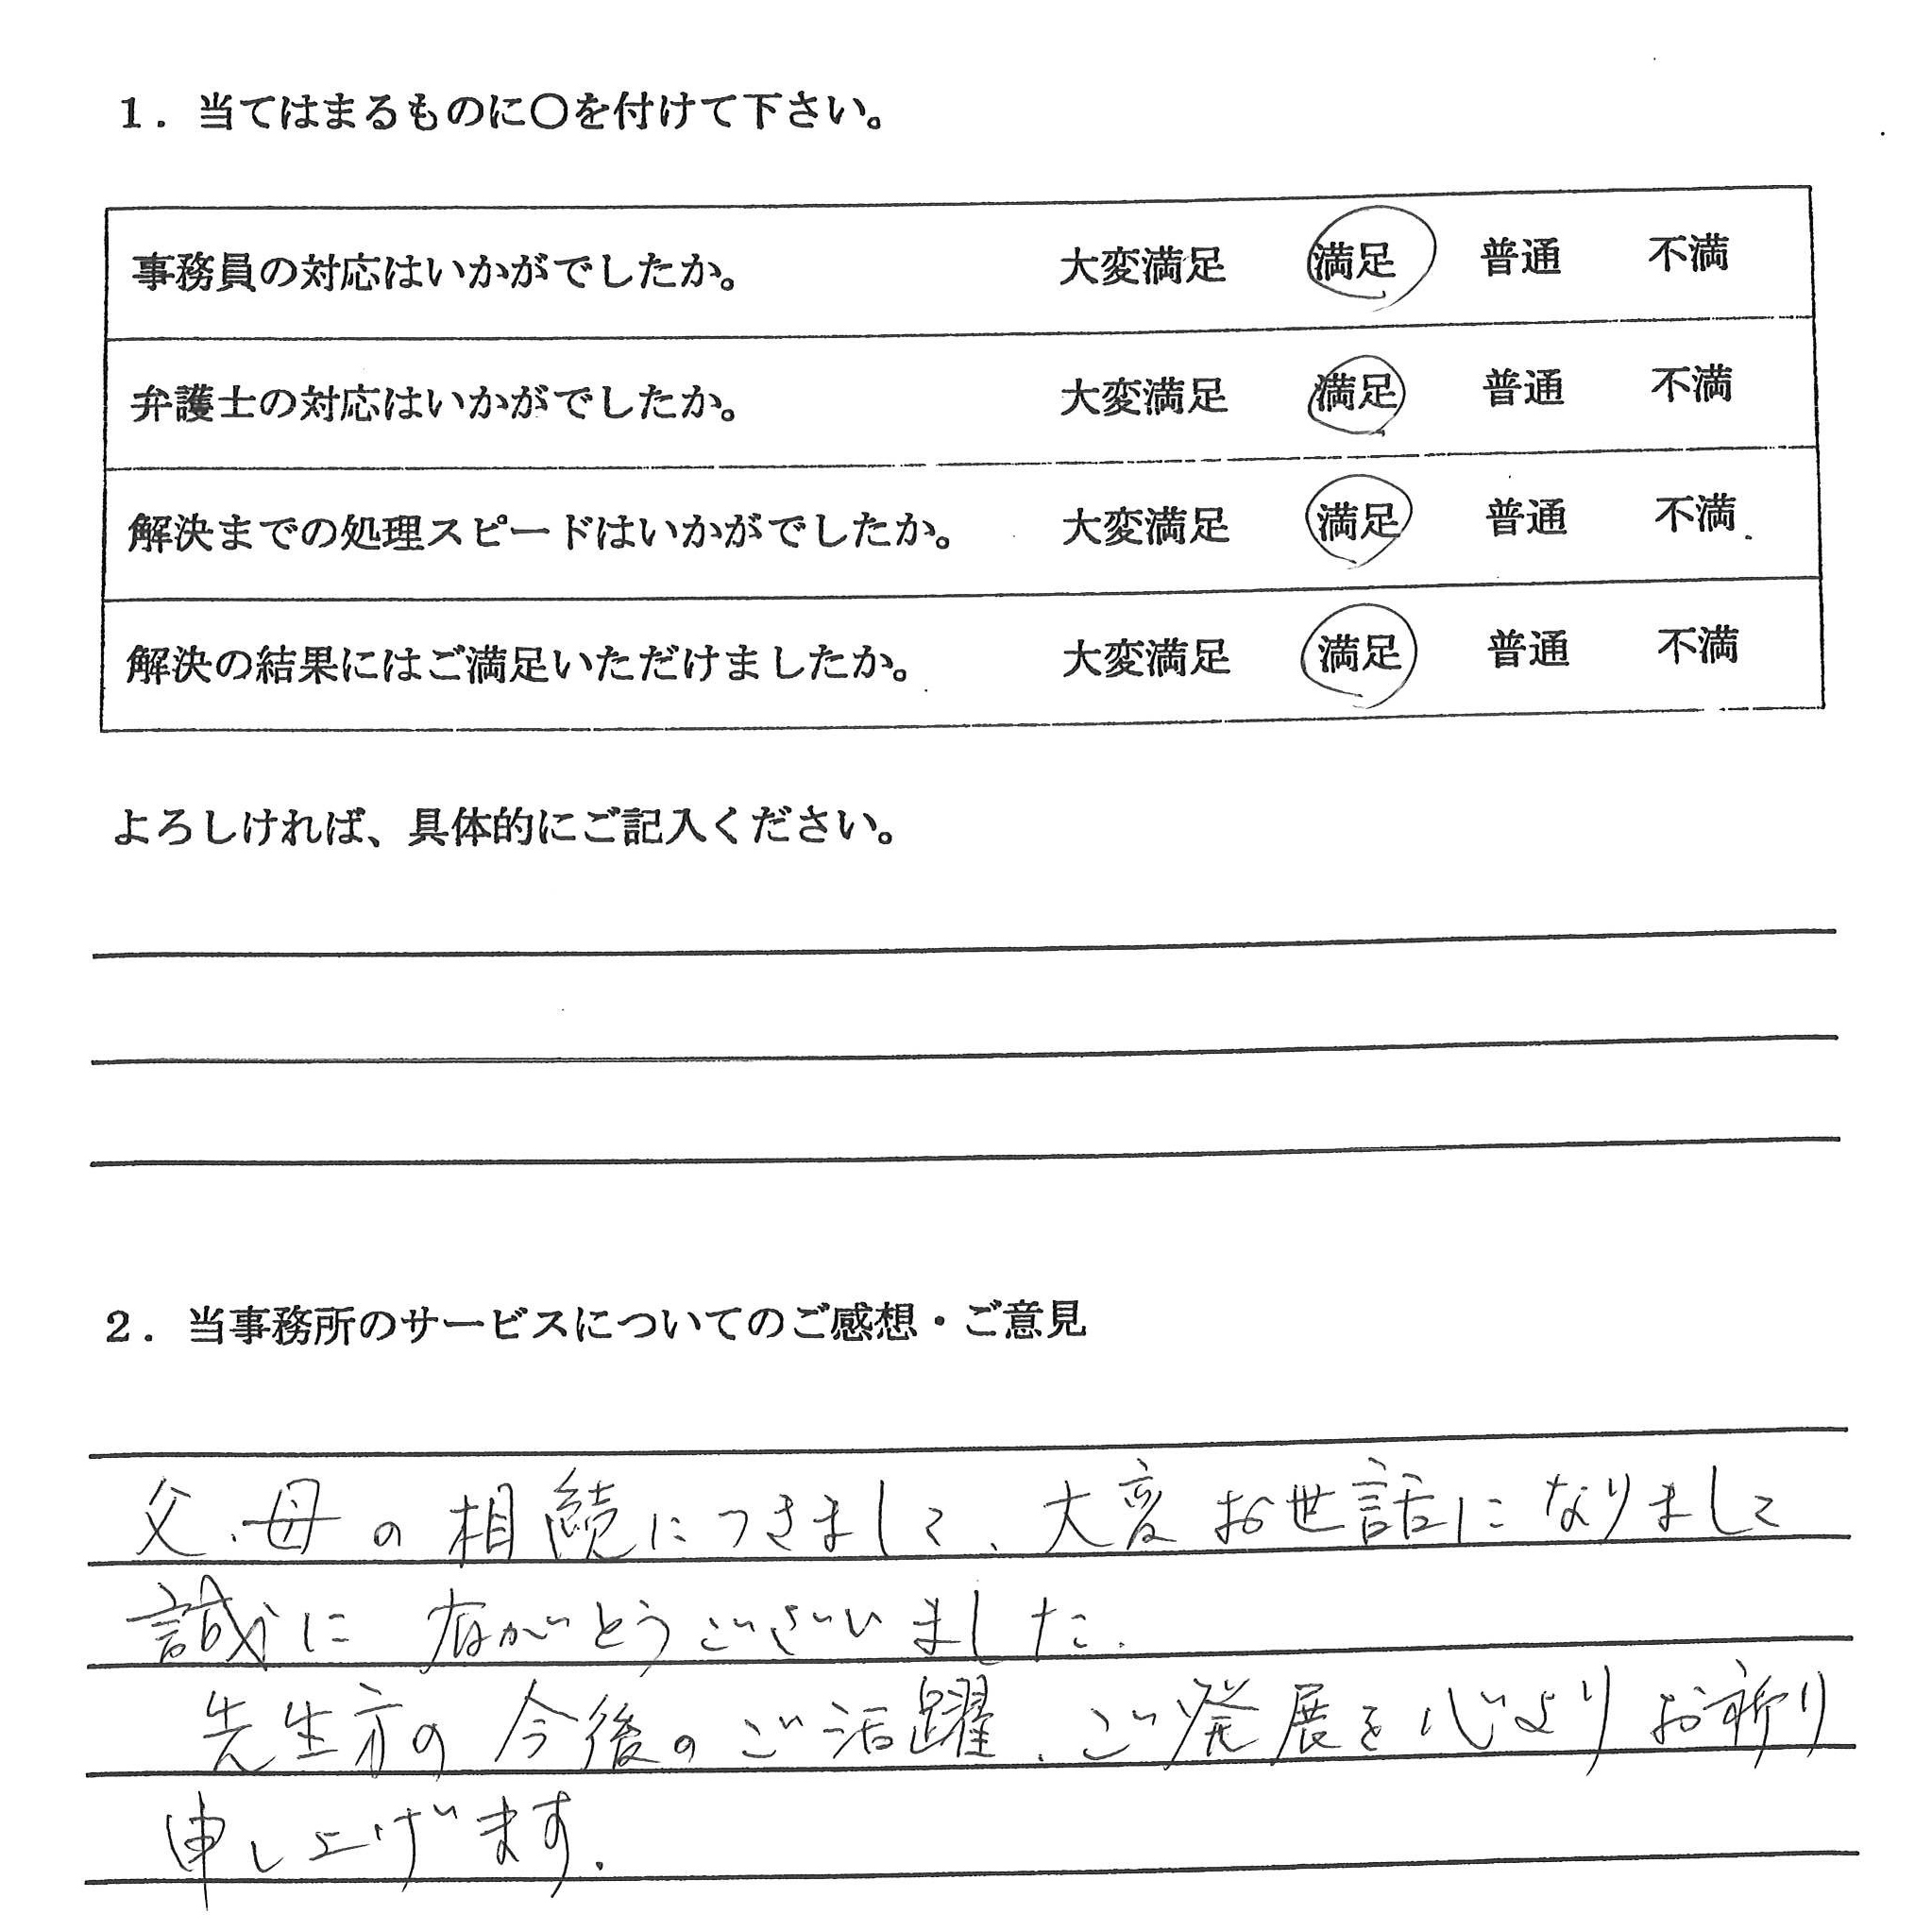 1．当てはまるものに〇を付けて下さい。
事務員の対応はいかがでしたか。 大変満足 満足 普通 不満
弁護士の対応はいかがでしたか。 大変満足 満足 普通 不満
解決までの処理スピードはいかがでしたか。 大変満足 満足 普通 不満
解決の結果にはご満足いただけましたか。 大変満足 満足 普通 不満
よろしければ、具体的にご記入ください。
2．当事務所のサービスについてのご感想・ご意見
父、母の相続につきまして、大変お世話になりまして
誠に有がとうございました.
先生方の今後のご活躍、ご発展を心よりお祈り
申し上げます.